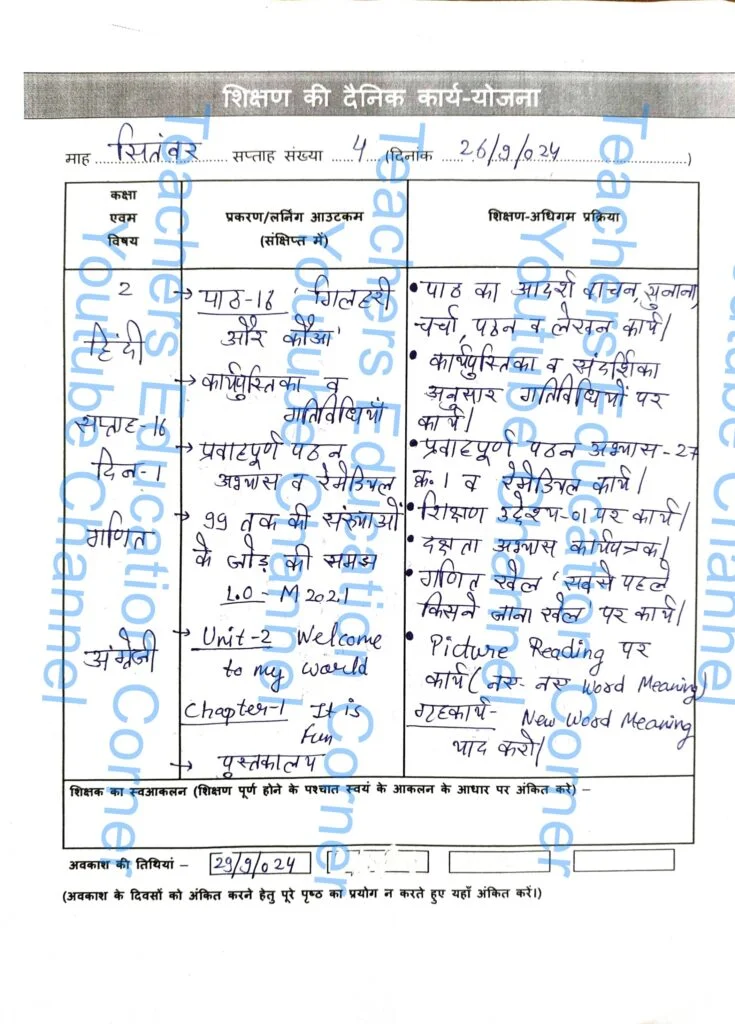 शिक्षण की दैनिक कार्य-योजना
माह सितंबर सप्ताह संख्या 4 (दिनांक 26/9/024)
कक्षा
एवम
विषय
प्रकरण/लर्निंग आउटकम
(संक्षिप्त में)
शिक्षण-अधिगम प्रक्रिया
2
हिंदी
सप्ताह-16
दिन-1
→ पाठ-16 'गिलहरी
और कौआ'
→ कार्यपुस्तिका व
गतिविधियाँ
→ प्रवाहपूर्ण पठन
अभ्यास व रेमेडियल
• पाठ का आदर्श वाचन, सुनाना,
चर्चा, पठन व लेखन कार्य।
• कार्यपुस्तिका व संदर्शिका
अनुसार गतिविधियों पर
कार्य।
• प्रवाहपूर्ण पठन अभ्यास-27
क.1 व रेमेडियल कार्य।
गणित
→ 99 तक की संख्याओं
के जोड़ की समझ
L.O - M 202.1
• शिक्षण उद्देश्य-01 पर कार्य।
• दक्षता अभ्यास कार्यपत्रक।
• गणित खेल 'सबसे पहले
किसने जाना खेल' पर कार्य।
अंग्रेजी
→ Unit-2 Welcome
to my world
Chapter-1 It is
fun
→ पुस्तकालय
• Picture Reading पर
कार्य (नए-नए Word Meaning)
गृहकार्य- New Word Meaning
याद करो।
शिक्षक का स्वआकलन (शिक्षण पूर्ण होने के पश्चात स्वयं के आकलन के आधार पर अंकित करे) –
अवकाश की तिथियां – 29/9/024
(अवकाश के दिवसों को अंकित करने हेतु पूरे पृष्ठ का प्रयोग न करते हुए यहाँ अंकित करें।)
Teachers Education Corner
Youtube Channel
Teachers Education Corner
Youtube Channel
Teachers Education Corner
Youtube Channel